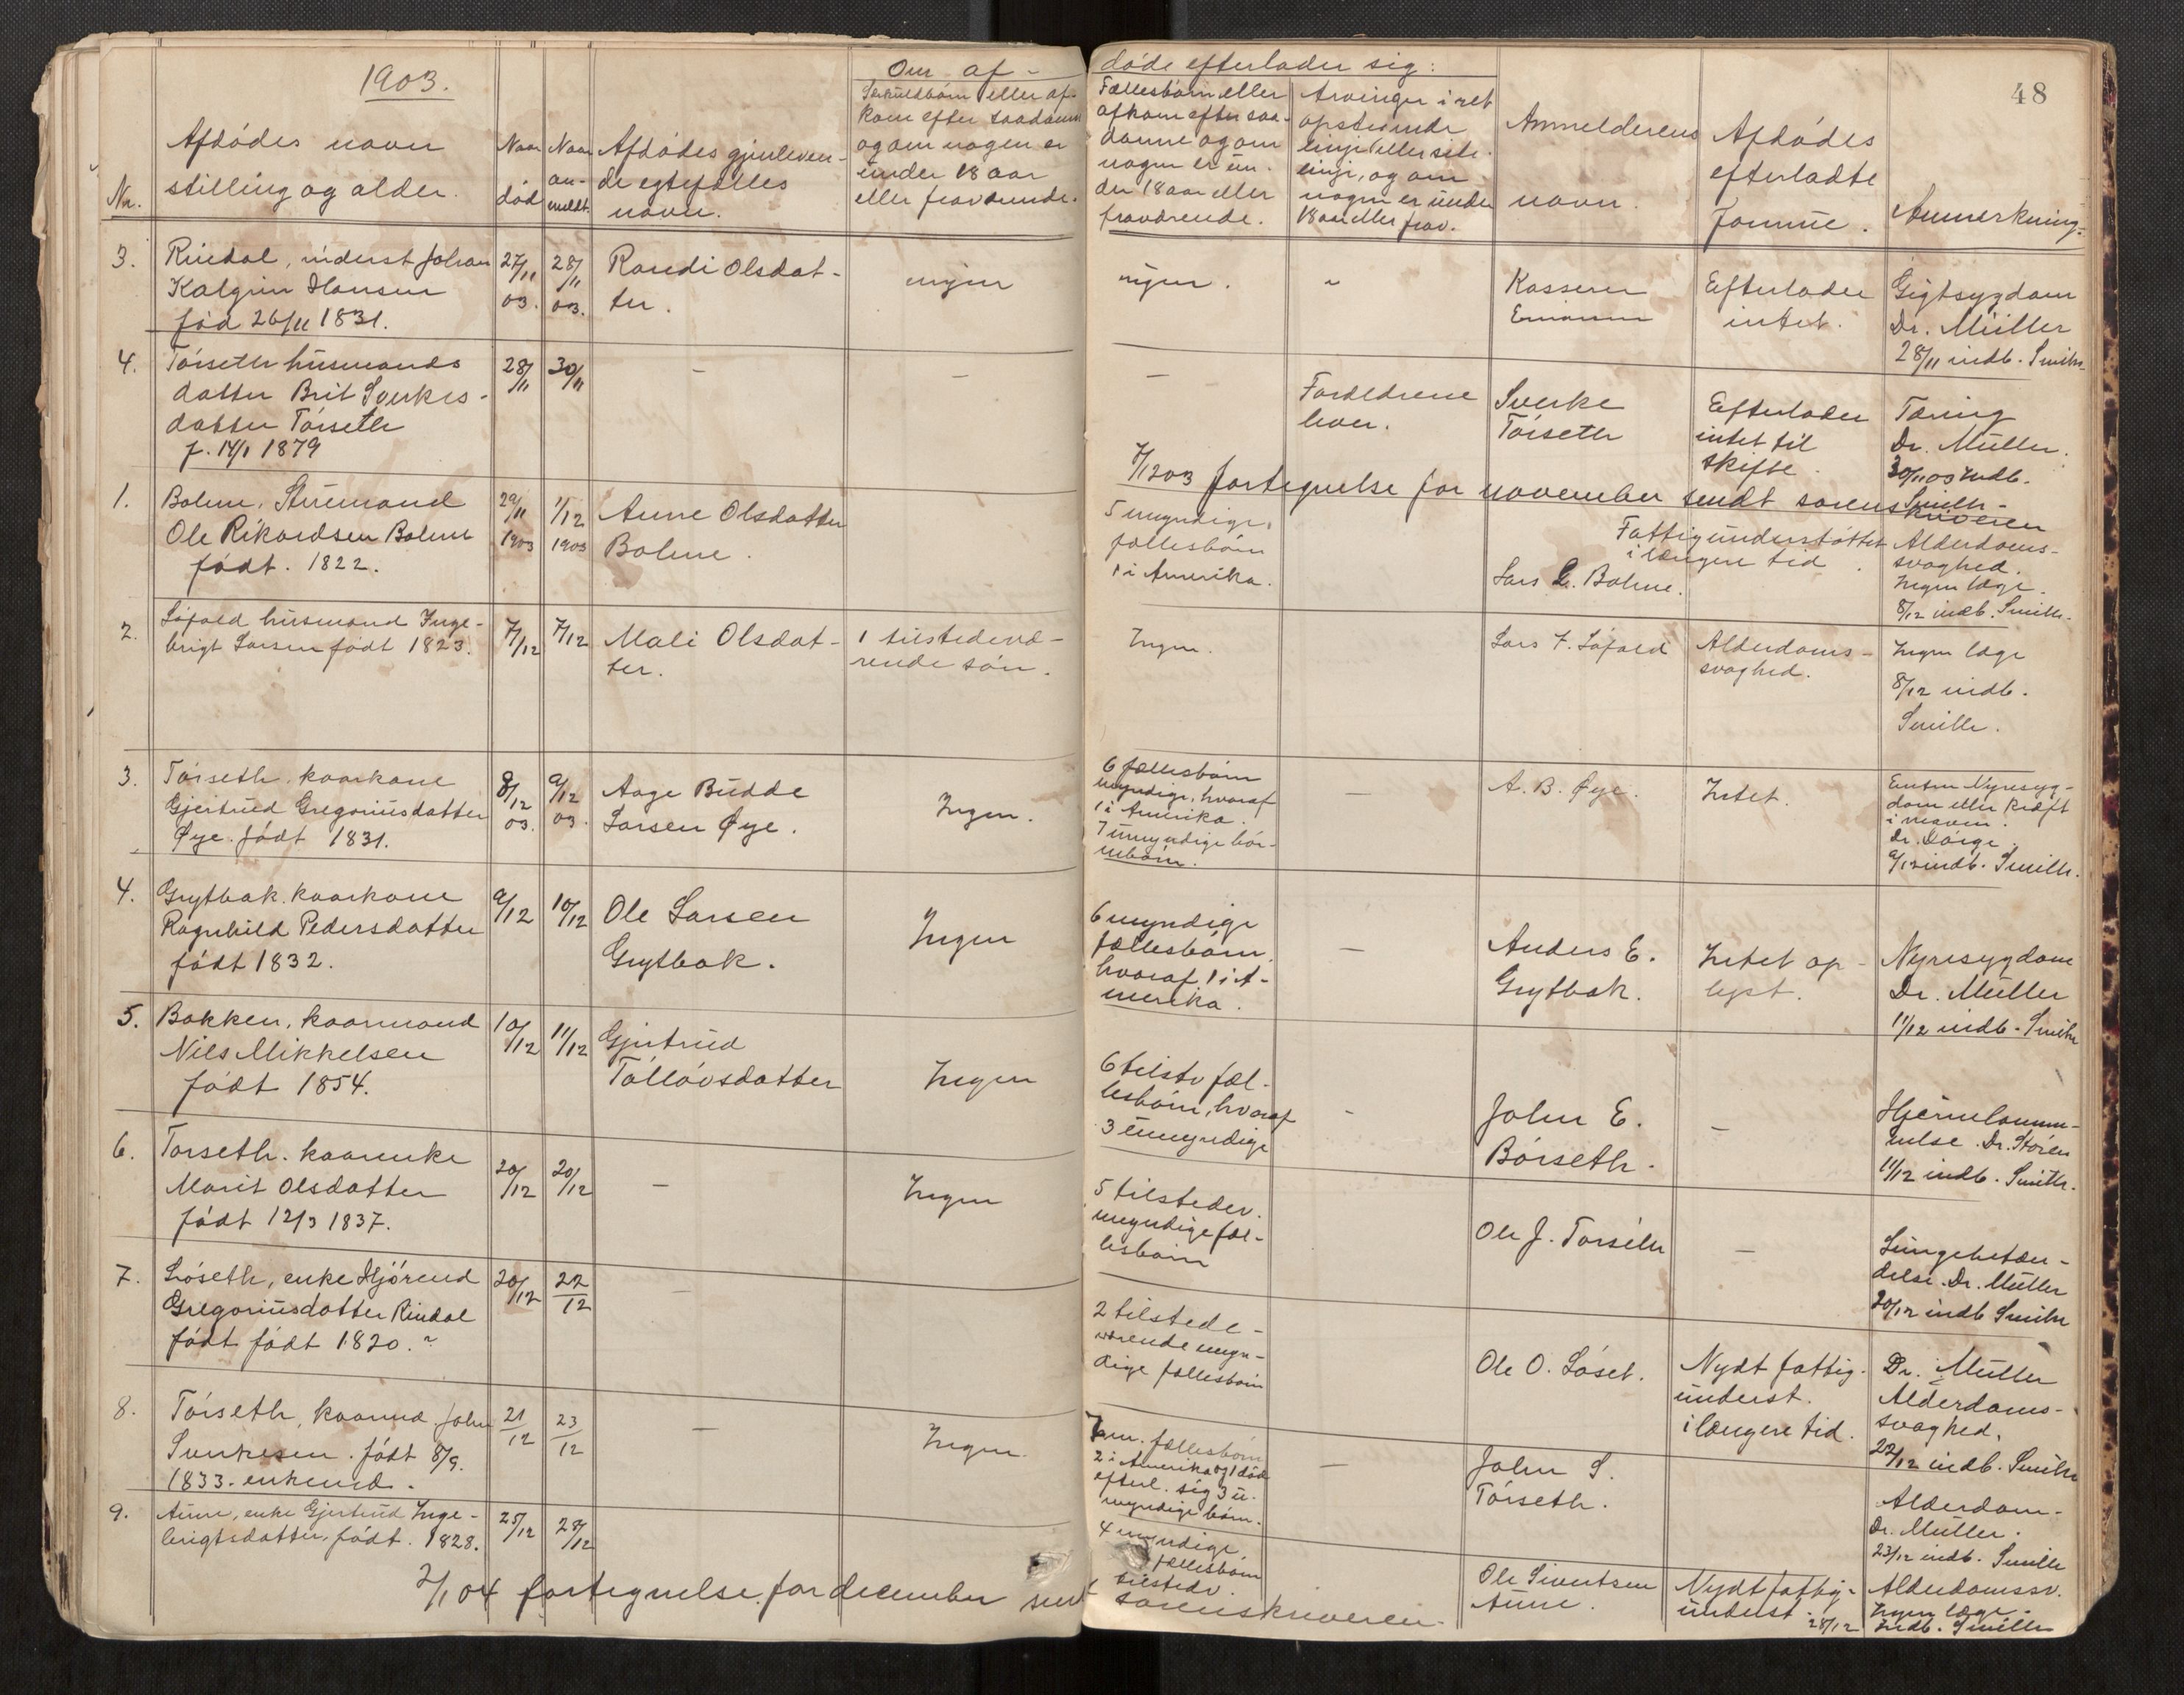 1903.
48
Om af-
døde efterlader sig:
Nr.
Afdødes navn
stilling og alder.
Naar
død
Naar
an-
meldt.
Afdødes gjenleven-
de egtefælles
navn.
Særkuldbørn eller af-
kom efter saadanne
og om nogen er
under 18 aar
eller fraværende.
Fællesbørn eller
afkom efter saa-
danne og om
nogen er un-
der 18 aar eller
fraværende.
Arvinger i ret
opstigende
linje eller side-
linje, og om
nogen er under
18 aar eller frav.
Anmelderens
navn.
Afdødes
efterladte
Formue.
Anmerkning.
3.
Rindal, inderst Johan
Kalgrin Hansen
fød 26/11 1831.
27/11
03.
28/11
03.
Randi Olsdat-
ter.
ingen
ingen.
"
Kasserer
Efterlader
intet.
Gigtsygdom
Dr. Müller
28/11 indb. Smith
4.
Törseth husmands
datter Brit Sverkes-
datter Törseth
f. 14/1 1879
28/11
30/11
-
-
-
Forældrene
lever.
Sverke
Törseth
Efterlader
intet til
skifte.
Tæring
Dr. Müller.
30/11 03 Indb.
Smith-
7/12 03 fortegnelse for november sendt sorenskriveren
1.
Bolme, Stuemand
Ole Rikardsen Bolme
født. 1822.
29/11
1903
1/12
1903
Anne Olsdatter
Bolme.
5 myndige
fællesbörn
1 i Amerika.
Lars L. Bolme.
Fattigunderstöttet
i længere tid.
Alderdoms-
svaghed.
Ingen læge.
8/12 indb. Smith.
2.
Löfald husmand Inge-
brigt Larsen født 1823.
7/12
7/12
Mali Olsdat-
ter.
1 tilstedevæ-
rende sön.
Ingen.
Lars I. Löfald
Alderdoms-
svaghed.
Ingen læge
8/12 indb.
Smith.
3.
Törseth, kaarkone
Gjertrud Gregoriusdatter
Øye. født 1831.
8/12
03.
9/12
03
Aage Büdde
Larsen Øye.
Ingen.
6 fællesbörn
myndige, hvoraf
1 i Amerika.
7 umyndige bör-
nebörn.
-
A. B. Øye.
Intet.
Enten Nyresyg-
dom eller kræft
i maven.
Dr. Dörge.
9/12 indb. Smith.
4.
Grytbak. kaarkone
Ragnhild Pedersdatter
født 1832.
9/12
10/12
Ole Larsen
Grytbak.
Ingen
6 myndige
fællesbörn,
hvoraf 1 i A-
merika.
-
Anders E.
Grytbak.
Intet op-
lyst.
Nyresygdom
Dr. Müller
11/12 indb. Smith
5.
Bakken, kaarmand
Nils Mikkelsen
født 1854.
10/12
11/12
Gjertrud
Tollövsdatter
Ingen
6 tilstv fæl-
lesbörn, hvoraf
3 umyndige
-
John E.
Börseth.
-
Hjernelamm-
nelse. Dr. Stören
11/12 indb. Smith.
6.
Torseth. kaarenke
Marit Olsdatter
født 12/3 1837.
20/12
20/12
-
Ingen
5 tilstedev.
myndige fæl-
lesbörn
Ole J. Torseth
-
Lungebetæn-
delse. Dr. Müller
20/12 indb Smith
7.
Löseth, enke Hjörend
Gregoriusdatter Rindal
født født 1820.?
20/12
22/12
-
2 tilstede-
værende myn-
dige fællesbörn
Ole O. Löset.
Nydt fattig-
underst.
i længere tid.
Dr. Müller
Alderdoms-
svaghed.
22/12 indb. Smith
8.
Törseth, kaarmd. John
Sverkesen. født 8/9.
1833. enkemd.
21/12
23/12
-
Ingen.
7 m. fællesbörn
2 i Amerika og 1 död
efterl. sig 3 u-
myndige börn.
-
John S.
Törseth.
Alderdom-
Dr. Müller.
23/12 indb. Smith
9.
Aune, enke Gjertrud Inge-
brigtsdatter, født. 1828.
25/12
28/12
4 myndige
fællesbörn
tilstedv.
Ole Sivertsen
Aune.
Nydt fattig-
underst.
28/12
Alderdomssv.
Ingen læge.
Indb. Smith
2/1 04 fortegnelse for december sendt sorenskriveren.